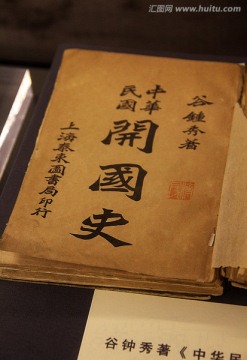 汇图网
www.huitu.com
谷鍾秀著
中華
民國
開國史
上海泰東圖書局印行
谷钟秀著《中华民